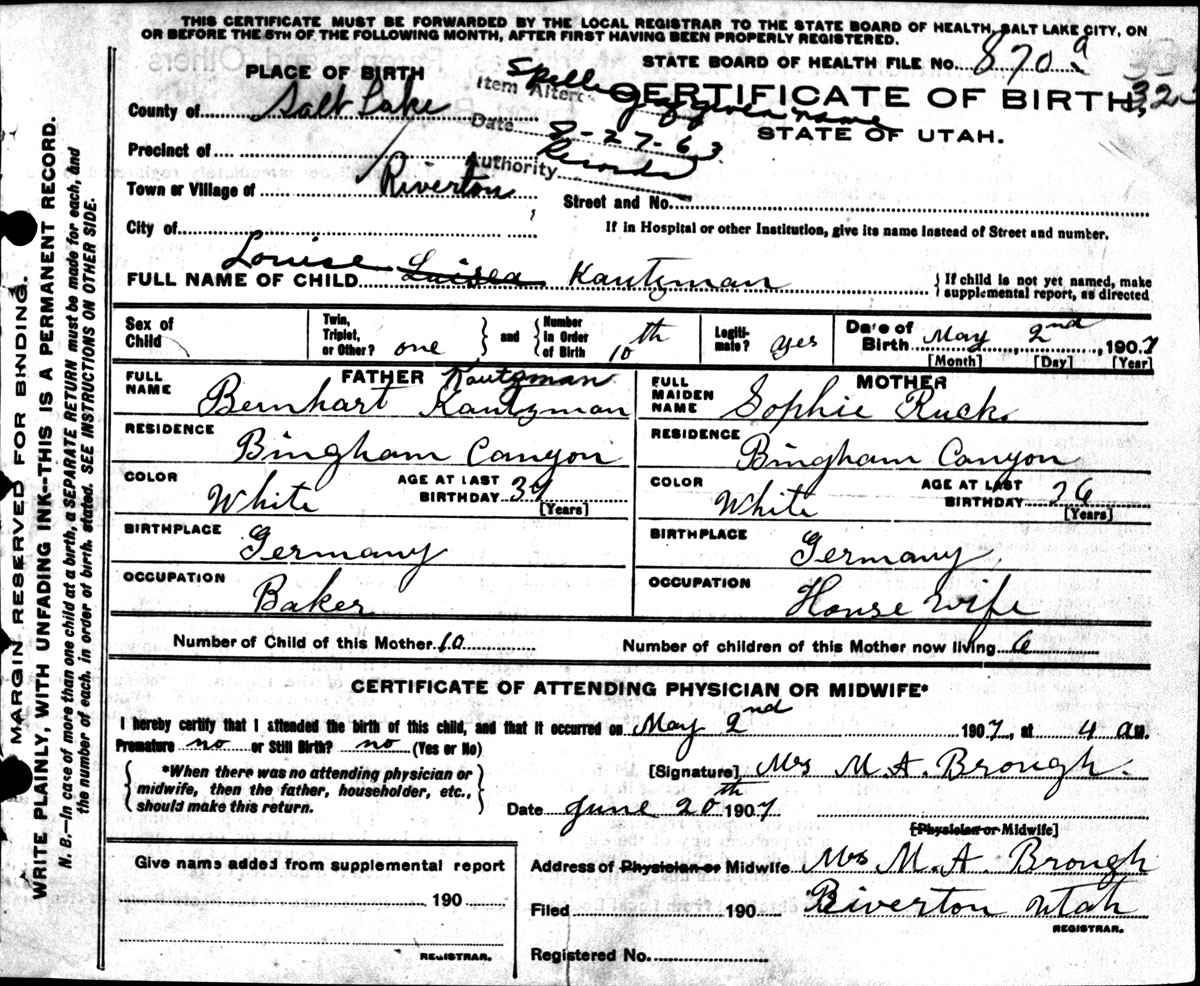 THIS CERTIFICATE MUST BE FORWARDED BY THE LOCAL REGISTRAR TO THE STATE BOARD OF HEALTH, SALT LAKE CITY, ON
OR BEFORE THE 5TH OF THE FOLLOWING MONTH, AFTER FIRST HAVING BEEN PROPERLY REGISTERED.
STATE BOARD OF HEALTH FILE No. 870 a
PLACE OF BIRTH
CERTIFICATE OF BIRTH
STATE OF UTAH.
Item Altered Spelling given name
Date 8-27-63
Authority Records
County of Salt Lake
Precinct of
Town or Village of Riverton
Street and No.
City of
If in Hospital or other Institution, give its name instead of Street and number.
Louise
FULL NAME OF CHILD Luisea Kautzman
{ If child is not yet named, make
supplemental report, as directed
Sex of
Child
Twin,
Triplet,
or Other? one
and
Number
in Order
of Birth 10th
Legiti-
mate? yes
Date of
Birth May 2nd, 1907
[Month] [Day] [Year]
FATHER
FULL
NAME
Kautzman
Bernhart Kautzman
RESIDENCE
Bingham Canyon
COLOR
White
AGE AT LAST
BIRTHDAY 37
[Years]
BIRTHPLACE
Germany
OCCUPATION
Baker
MOTHER
FULL
MAIDEN
NAME
Sophie Ruck
RESIDENCE
Bingham Canyon
COLOR
White
AGE AT LAST
BIRTHDAY 36
[Years]
BIRTHPLACE
Germany
OCCUPATION
House wife
Number of Child of this Mother 10
Number of children of this Mother now living 6
CERTIFICATE OF ATTENDING PHYSICIAN OR MIDWIFE*
I hereby certify that I attended the birth of this child, and that it occurred on May 2nd 1907, at 4 a M.
Premature no or Still Birth? no (Yes or No)
*When there was no attending physician or
midwife, then the father, householder, etc.,
should make this return.
[Signature] Mrs M. A. Brough.
Date June 20th 1907
[Physician or Midwife]
Give name added from supplemental report
190
REGISTRAR.
Address of Physician or Midwife Mrs M. A. Brough
Filed 190
Riverton Utah
REGISTRAR.
Registered No.
MARGIN RESERVED FOR BINDING.
WRITE PLAINLY, WITH UNFADING INK--THIS IS A PERMANENT RECORD.
N. B.—In case of more than one child at a birth, a SEPARATE RETURN must be made for each, and
the number of each, in order of birth, stated. SEE INSTRUCTIONS ON OTHER SIDE.